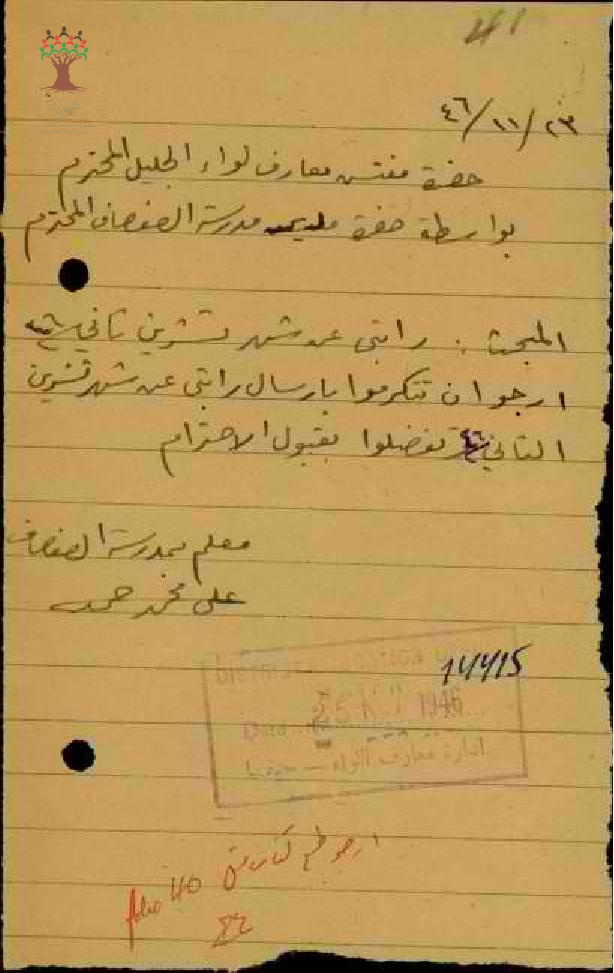 41
٤٦/١١/٢٣
حضرة مفتش معارف لواء الجليل المحترم
بواسطة حضرة مدير مدرسة الصفصاف المحترم
المبحث : راتبي عن شهر تشرين ثاني ٤٦
ارجو ان تتكرموا بارسال راتبي عن شهر تشرين
الثاني ٤٦ تفضلوا بقبول الاحترام
معلم بمدرسة الصفصاف
علي محمد حمد
14415
DISTRICT EDUCATION
Date 25 1946
ادارة معارف اللواء — حيفا
ارجو
folio 40